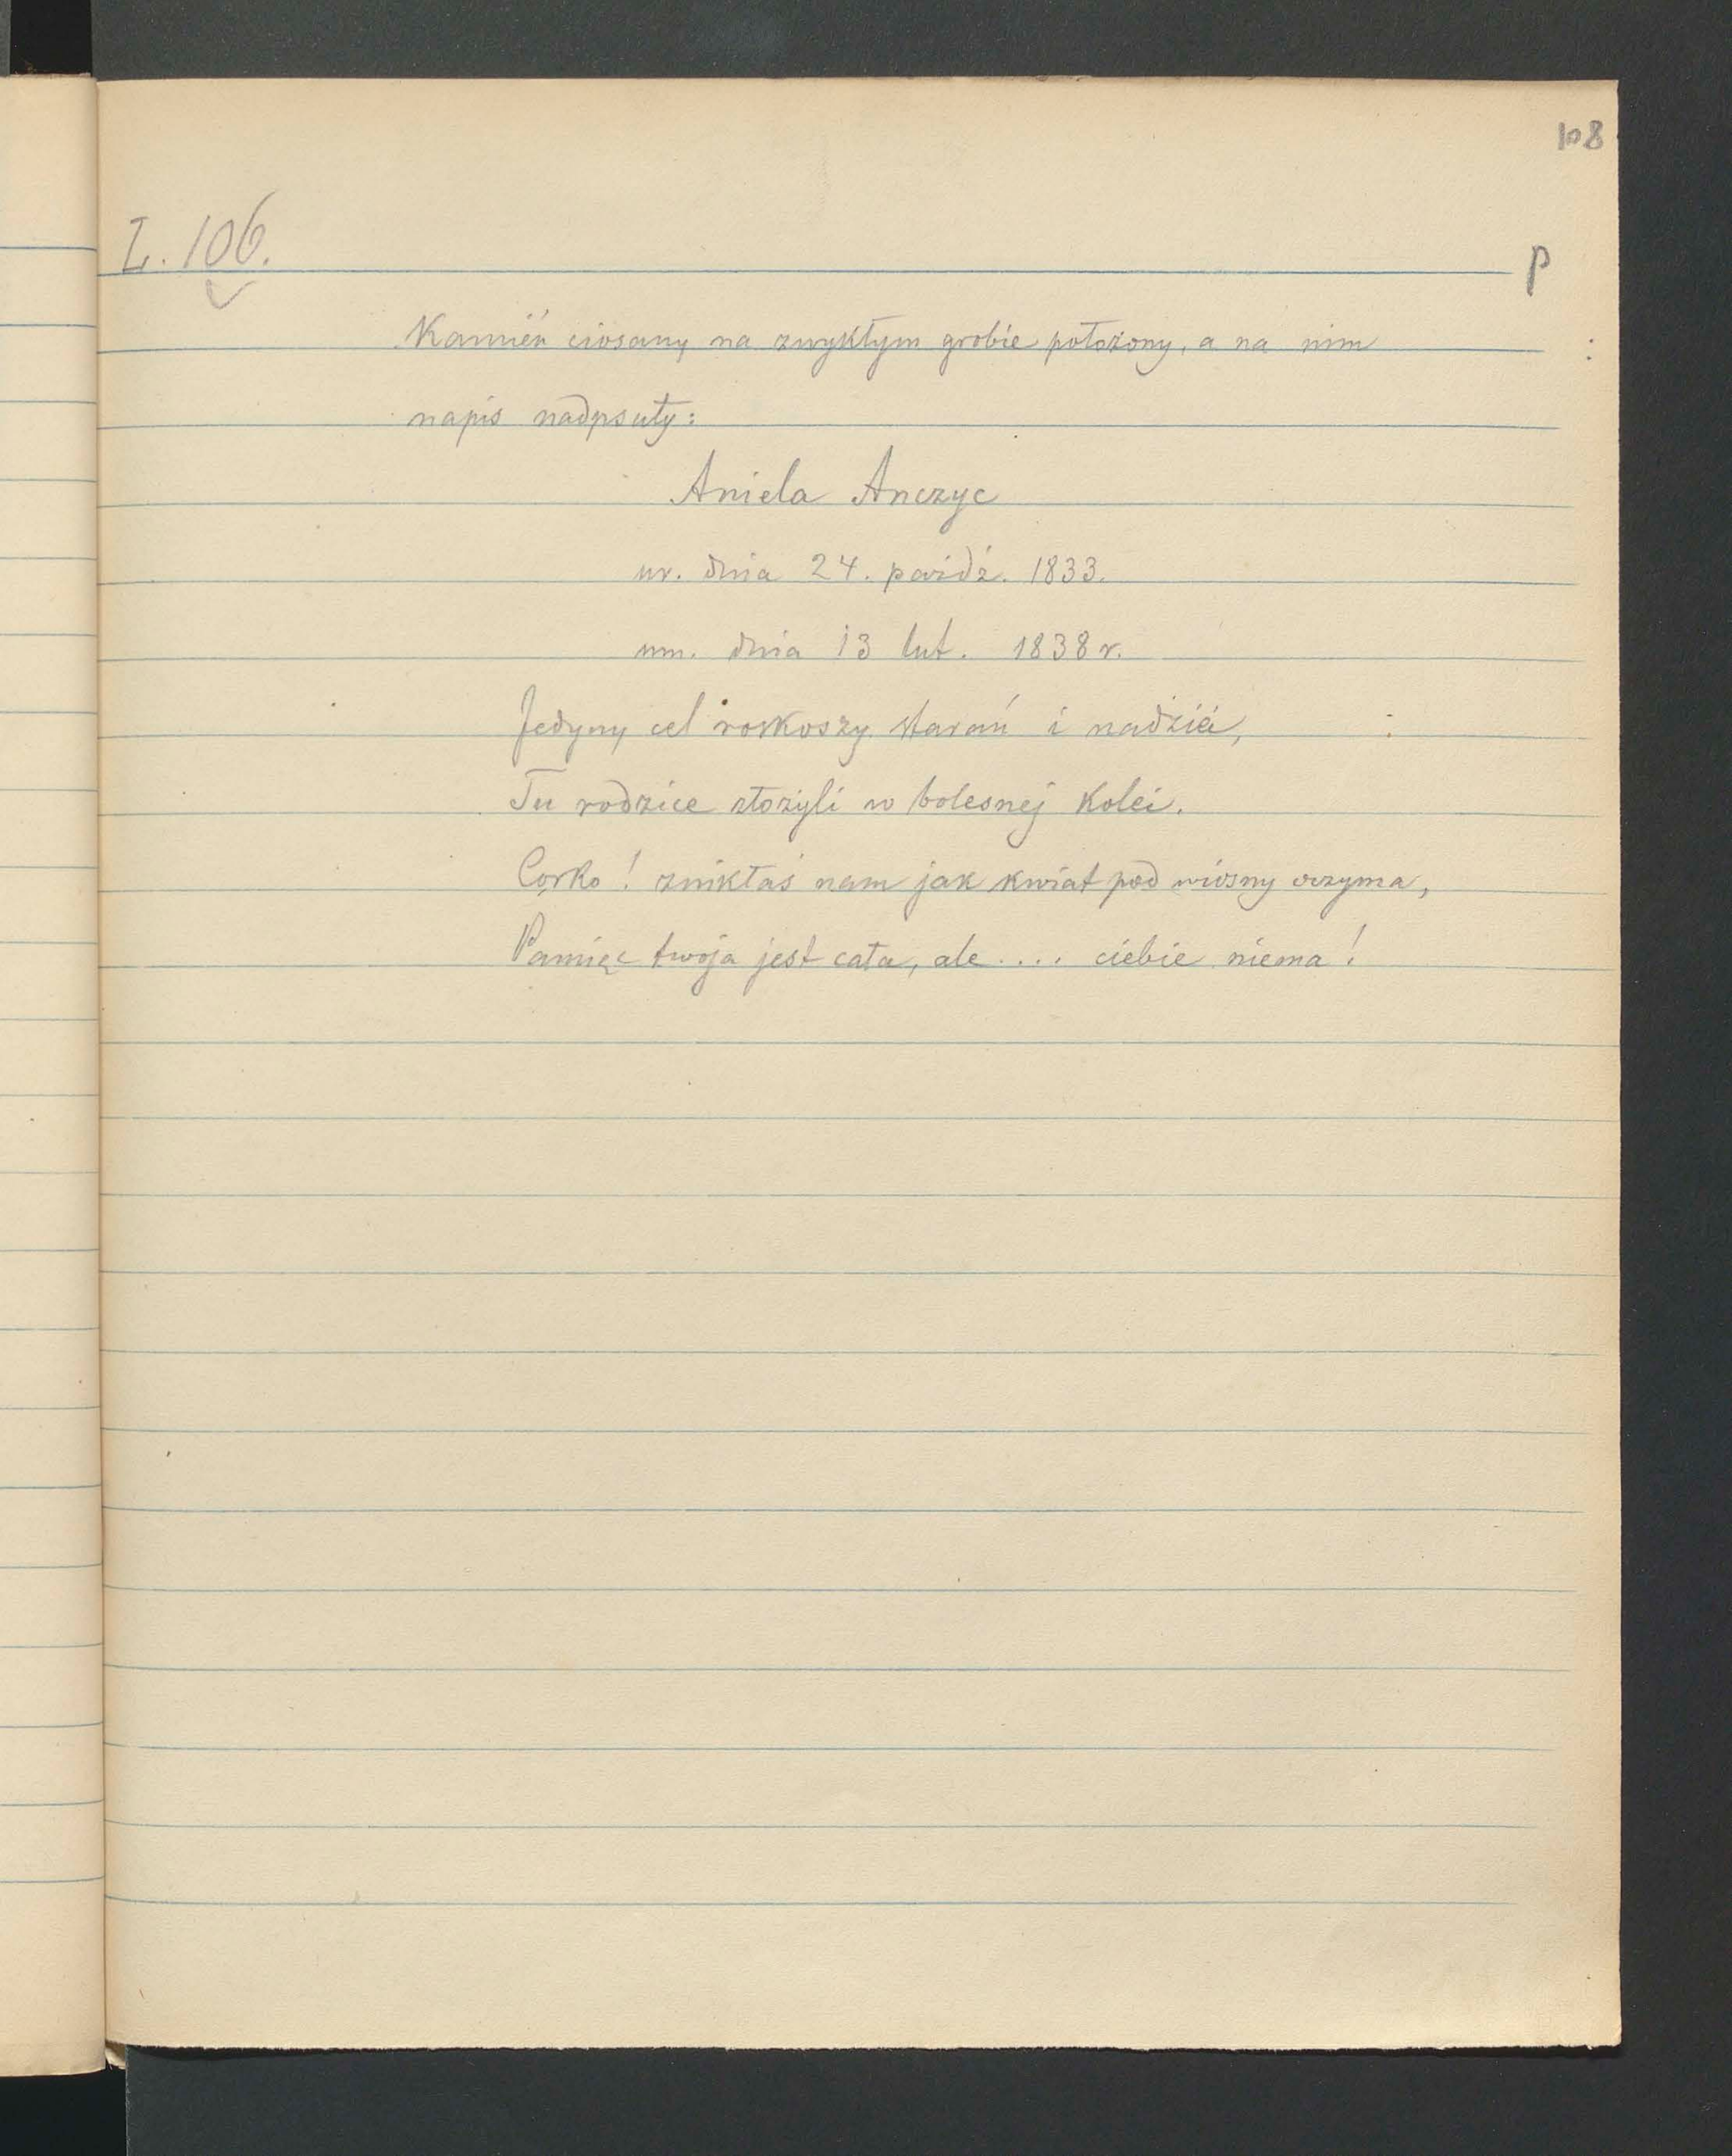 108
L. 106.
P
Kamień ciosany na zwykłym grobie położony, a na nim
napis nadpsuty:
Aniela Anczyc
ur. dnia 24. paźdź. 1833.
um. dnia 13 lut. 1838 r.
Jedyny cel roskoszy starań i nadziei,
Tu rodzice złożyli w bolesnej kolei.
Corko! znikłaś nam jak kwiat pod wiosny oczyma,
Pamięc twoja jest cała, ale.... ciebie niema!